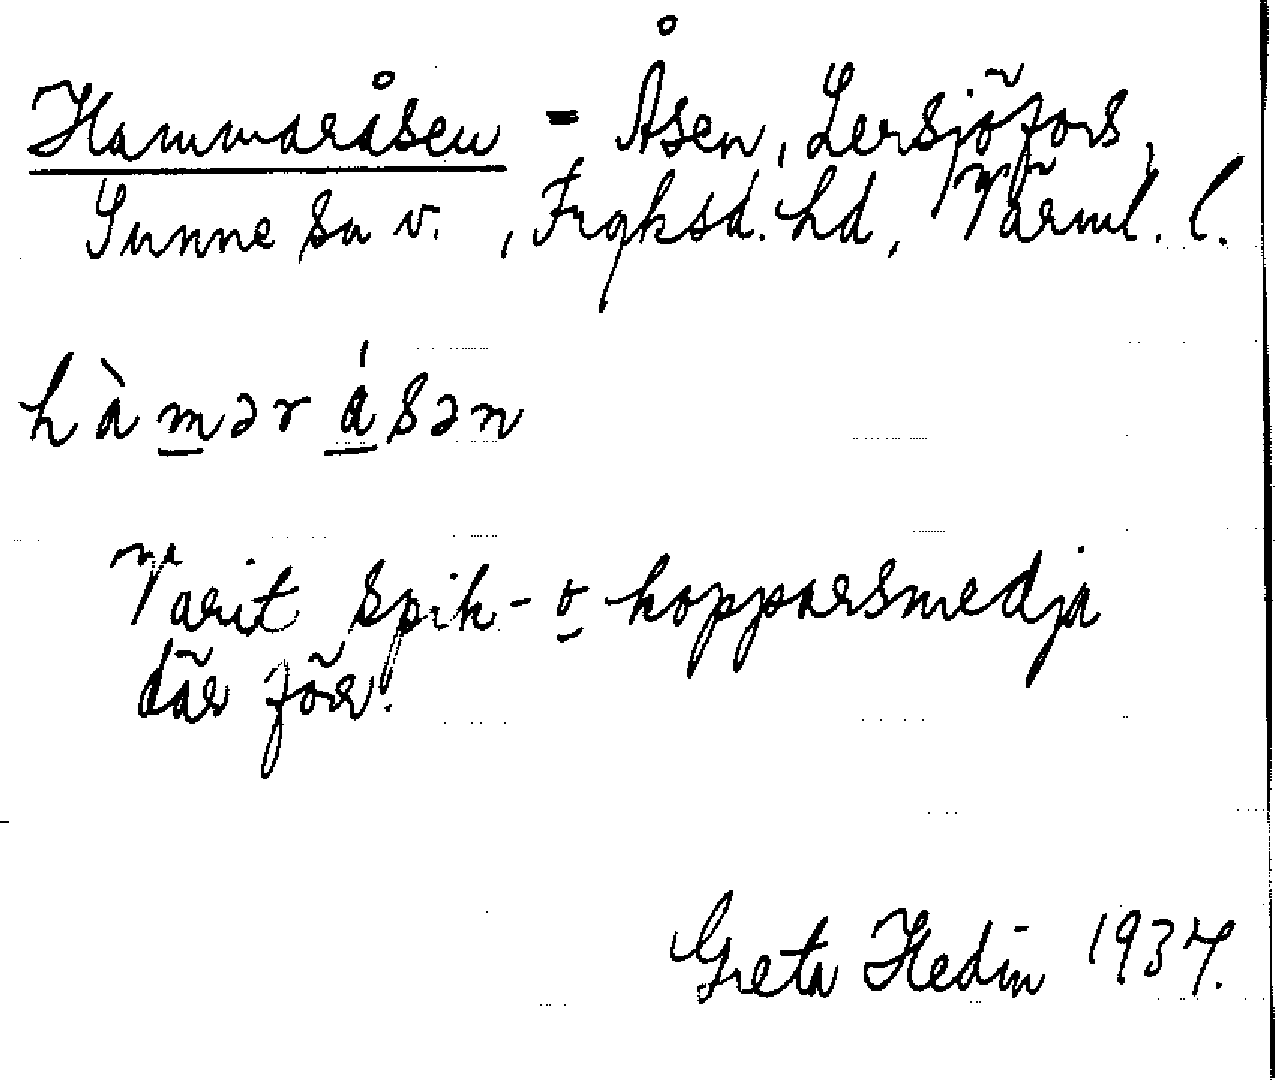 Hammaråsen = Åsen, Lersjöfors,
Sunne sn v., Fryksd. hd, Värml. l.
hàmər ásən
Varit spik- o kopparsmedja
där för.
Greta Hedin 1937.